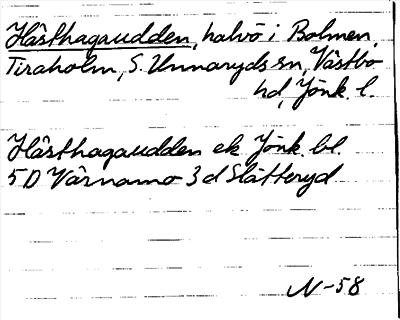 Hästhagaudden, halvö i Bolmen,
Tiraholm, S. Unnaryds sn, Västbo
hd, Jönk. l.
Hästhagaudden ek Jönk. bl.
5D Värnamo 3d Slätteryd
N-58